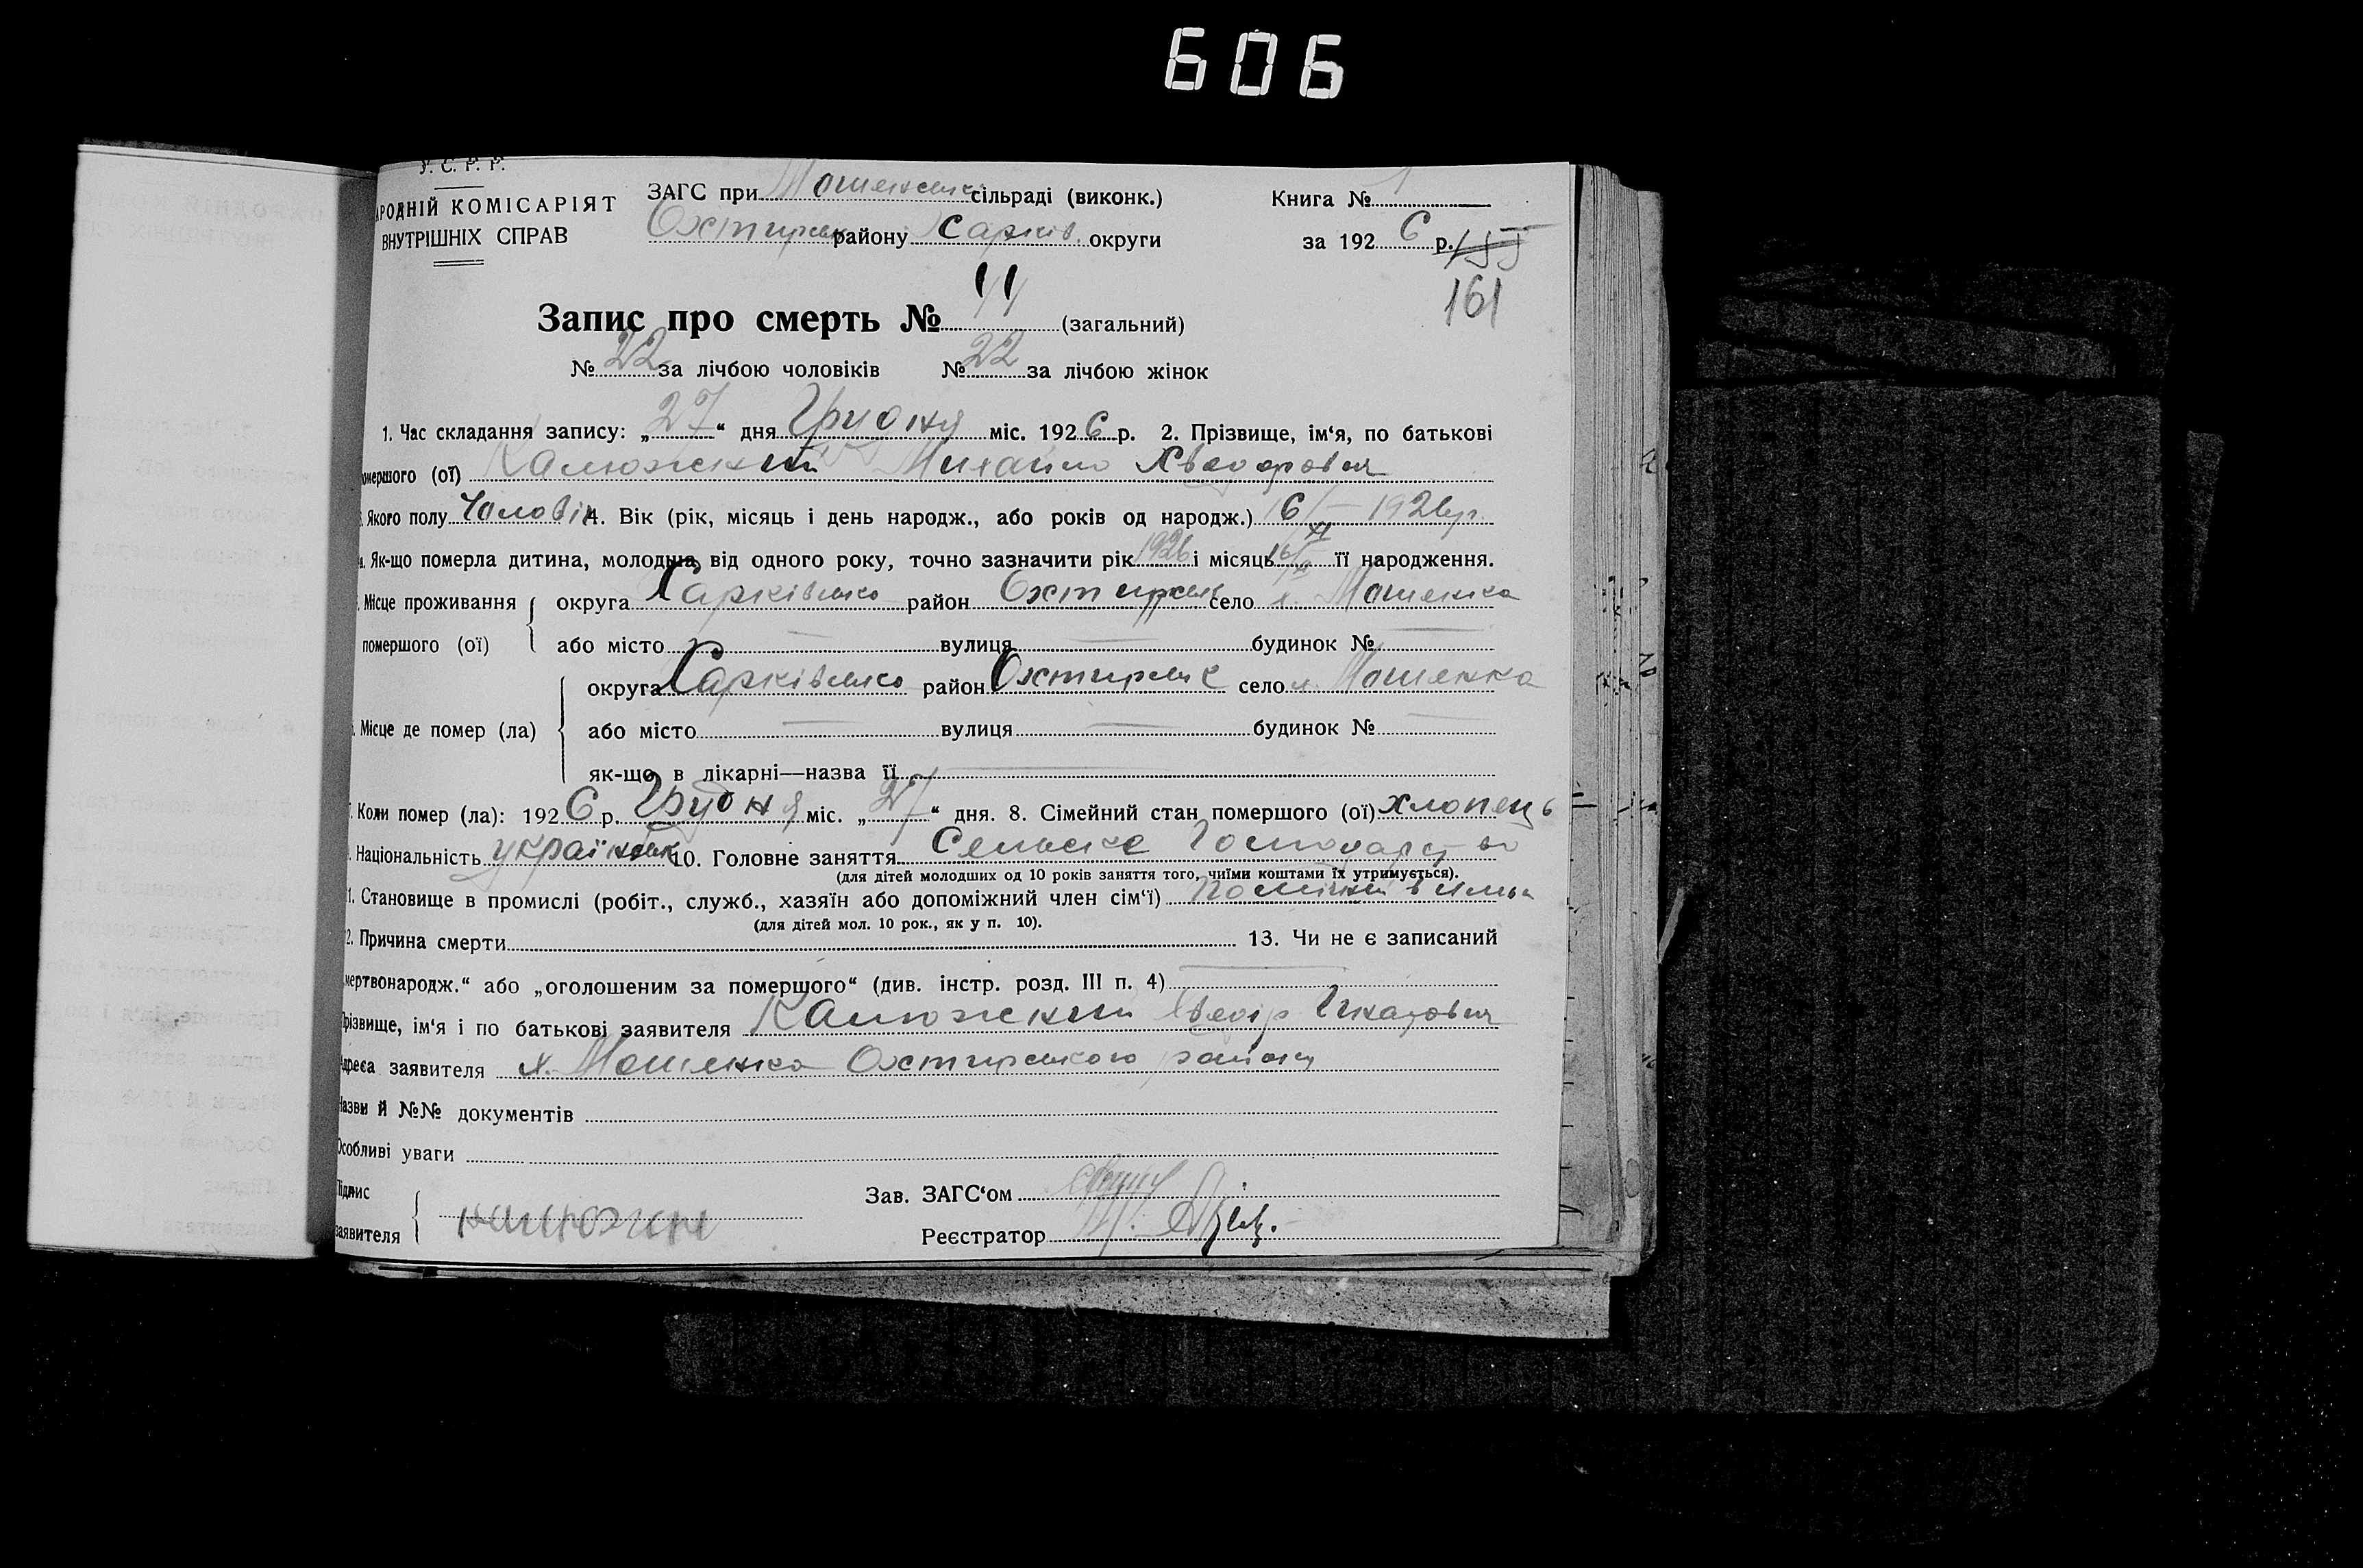 606
У. С. Р. Р.
АРОДНІЙ КОМІСАРІЯТ
ВНУТРІШНІХ СПРАВ
ЗАГС при сільраді (виконк.)
Охтирськ району Харків. округи
Книга № 1
за 1926 р. 155
161
Запис про смерть № 44 (загальний)
№ 22 за лічбою чоловіків № 22 за лічбою жінок
1. Час складання запису: „27“ дня Грудня міс. 1926 р. 2. Прізвище, ім‘я, по батькові
омершого (ої) Калюжний Михайло
Якого полу Чоловік 4. Вік (рік, місяць і день народж., або років од народж.) 1926 р.
Як-що померла дитина, молодша від одного року, точно зазначити рік 1926 і місяць 16/XI її народження.
Місце проживання помершого (ої) { округа Харківсько район Охтирськ село х. Мошенка
або місто — вулиця — будинок № —
Місце де помер (ла) { округа Харківсько район Охтирське село х. Мошенка
або місто — вулиця — будинок № —
як-що в лікарні—назва її —
Коли помер (ла): 1926 р. Грудня міс. „27“ дня. 8. Сімейний стан помершого (ої) хлопець
Національність 10. Головне заняття Сельске Господарство
(для дітей молодших од 10 років заняття того, чиїми коштами їх утримується).
1. Становище в промислі (робіт., служб., хазяїн або допоміжний член сім‘ї)
(для дітей мол. 10 рок., як у п. 10).
2. Причина смерти 13. Чи не є записаний
мертвонародж.“ або „оголошеним за помершого“ (див. інстр. розд. III п. 4) —
Прізвище, ім‘я і по батькові заявителя Калюжний
Адреса заявителя х. Мошенка Охтирського району
Назви й №№ документів
Особливі уваги
Підпис
заявителя {
Зав. ЗАГС‘ом
Реєстратор